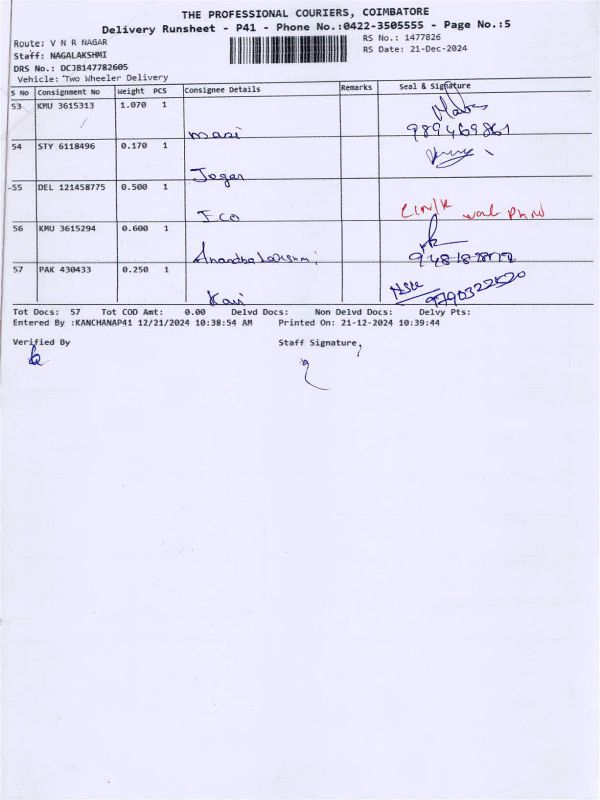 THE PROFESSIONAL COURIERS, COIMBATORE
Delivery Runsheet - P41 - Phone No.:0422-3505555 - Page No.:5
Route: V N R NAGAR RS No.: 1477826
Staff: NAGALAKSHMI RS Date: 21-Dec-2024
DRS No.: DCJB147782605
Vehicle: Two Wheeler Delivery
S No Consignment No Weight PCS Consignee Details Remarks Seal & Signature
53 KMU 3615313 1.070 1
mani
54 STY 6118496 0.170 1
Jegan
-55 DEL 121458775 0.500 1
FCO
56 KMU 3615294 0.600 1
Anandha lakshmi
57 PAK 430433 0.250 1
Kavi 9790322520
Tot Docs: 57 Tot COD Amt: 0.00 Delvd Docs: Non Delvd Docs: Delvy Pts:
Entered By :KANCHANAP41 12/21/2024 10:38:54 AM Printed On: 21-12-2024 10:39:44
Verified By Staff Signature